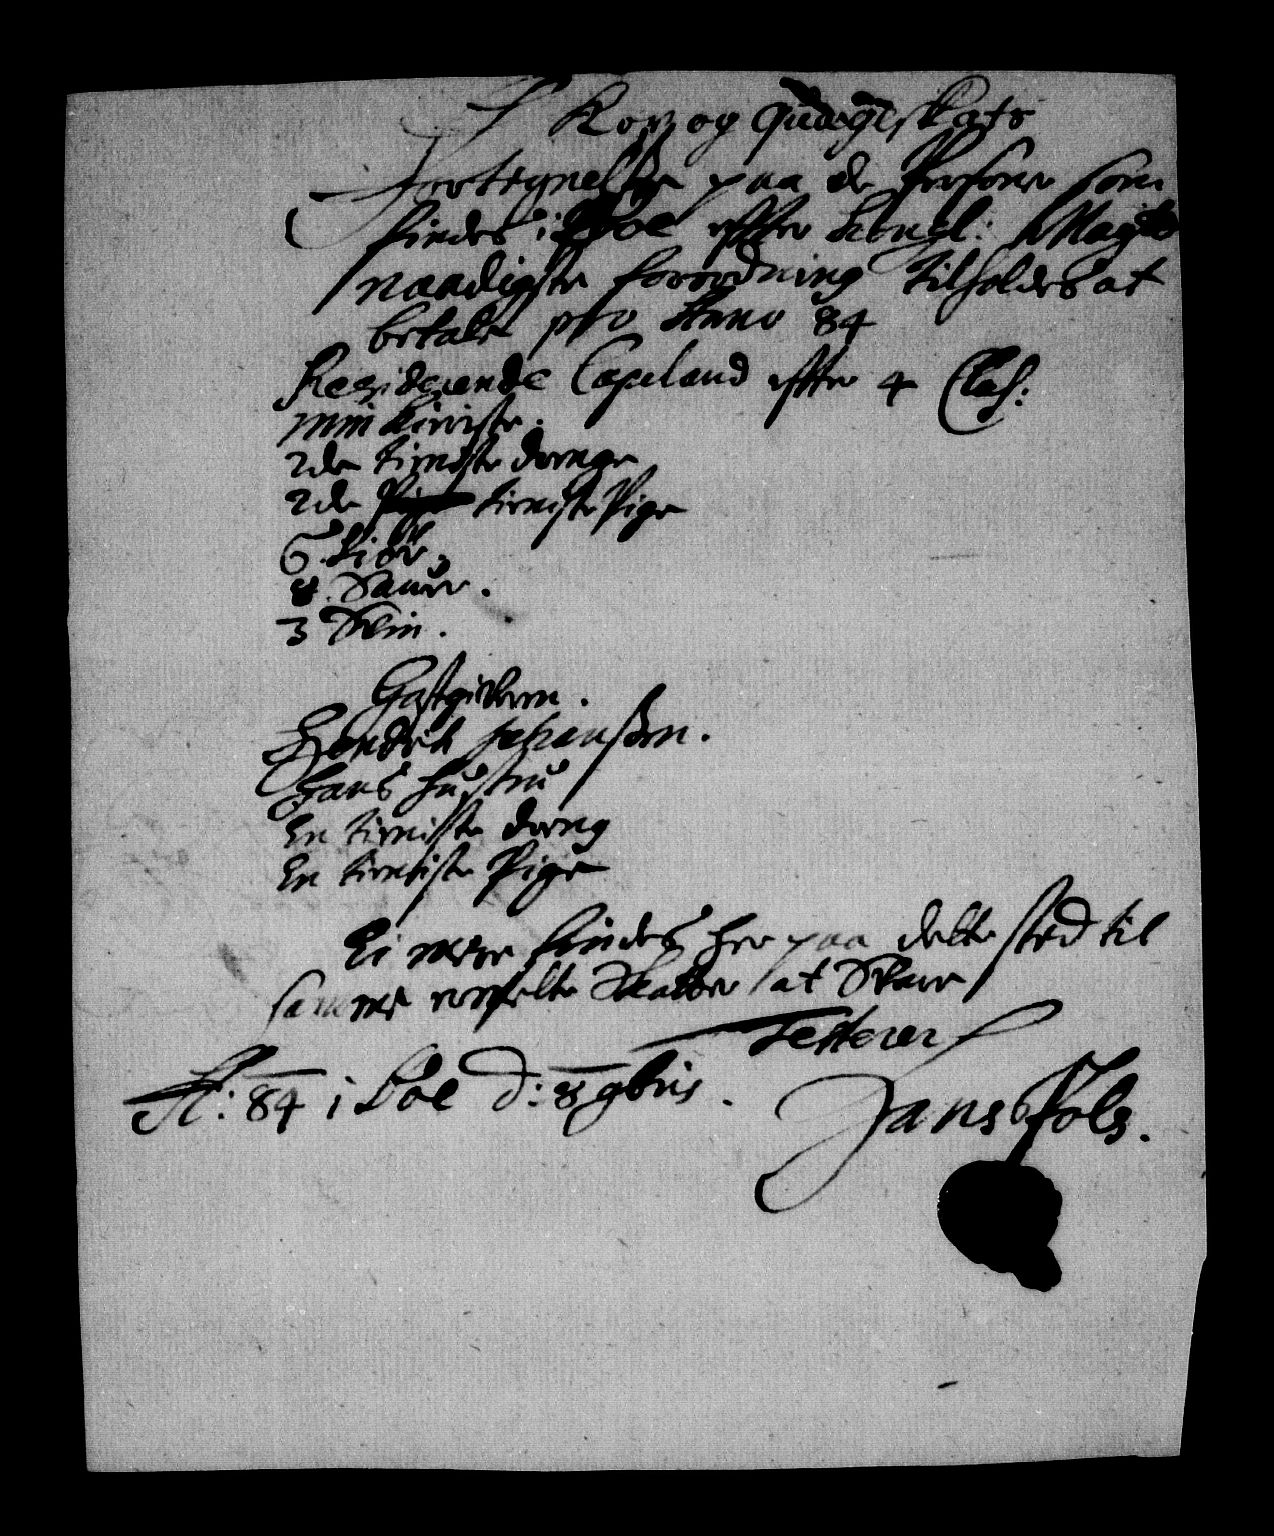 Kop og Quægskats
Fortegnelse paa de Persone som
findes i Boe effter Kongl: Mayts
naadigste forordning tilholdes at
betale pro Anno 84
Residerende Capeland effter 4 Clas:
min tieniste.
2de tieniste drenge
2de tieniste Pige
6. Kiör.
8. Sauer.
3 Svin.
Gastgiveren.
Hendrik Johansøen.
Hans hustru
En tieniste dreng
En tieniste Pige
Ei mere findes her paa dette sted til
samme ermelte Skatter at Svare
Testerer
A: 84 i Boe d: 8 9bris.
Jans Fols.